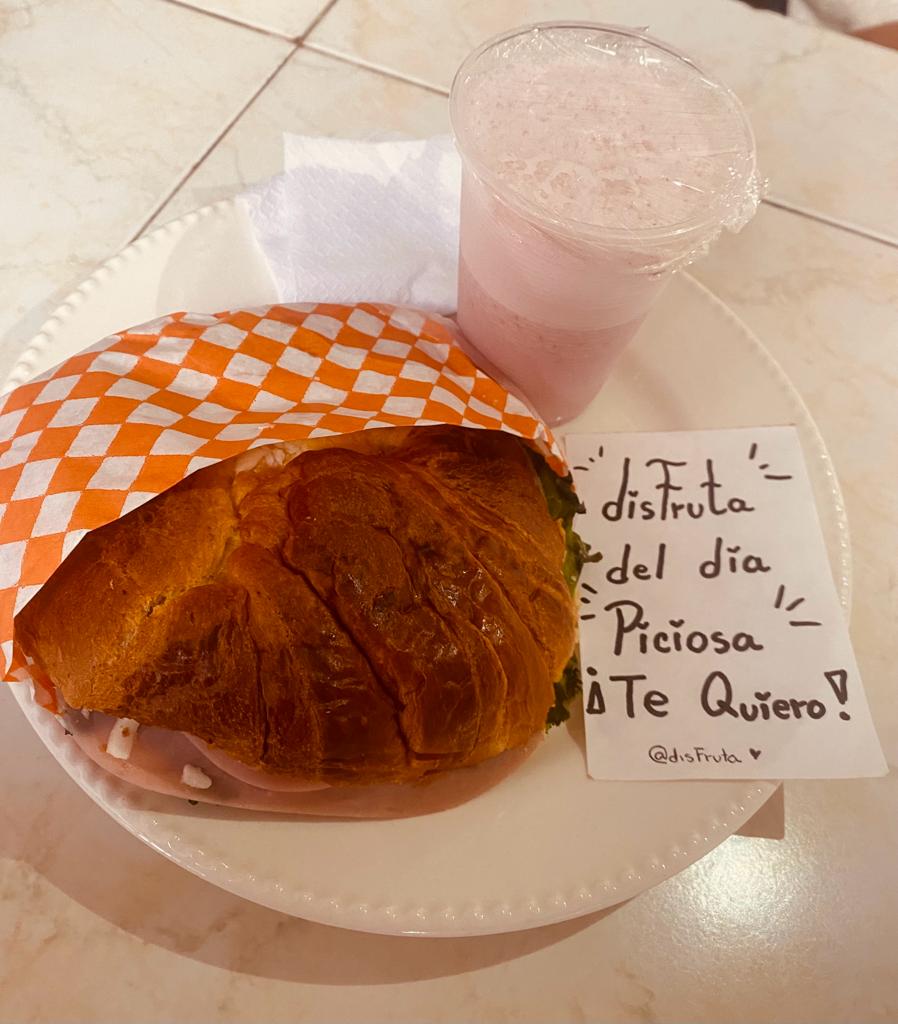 disFruta
del día
Piciosa
¡Te Quiero!
@disFruta ♥